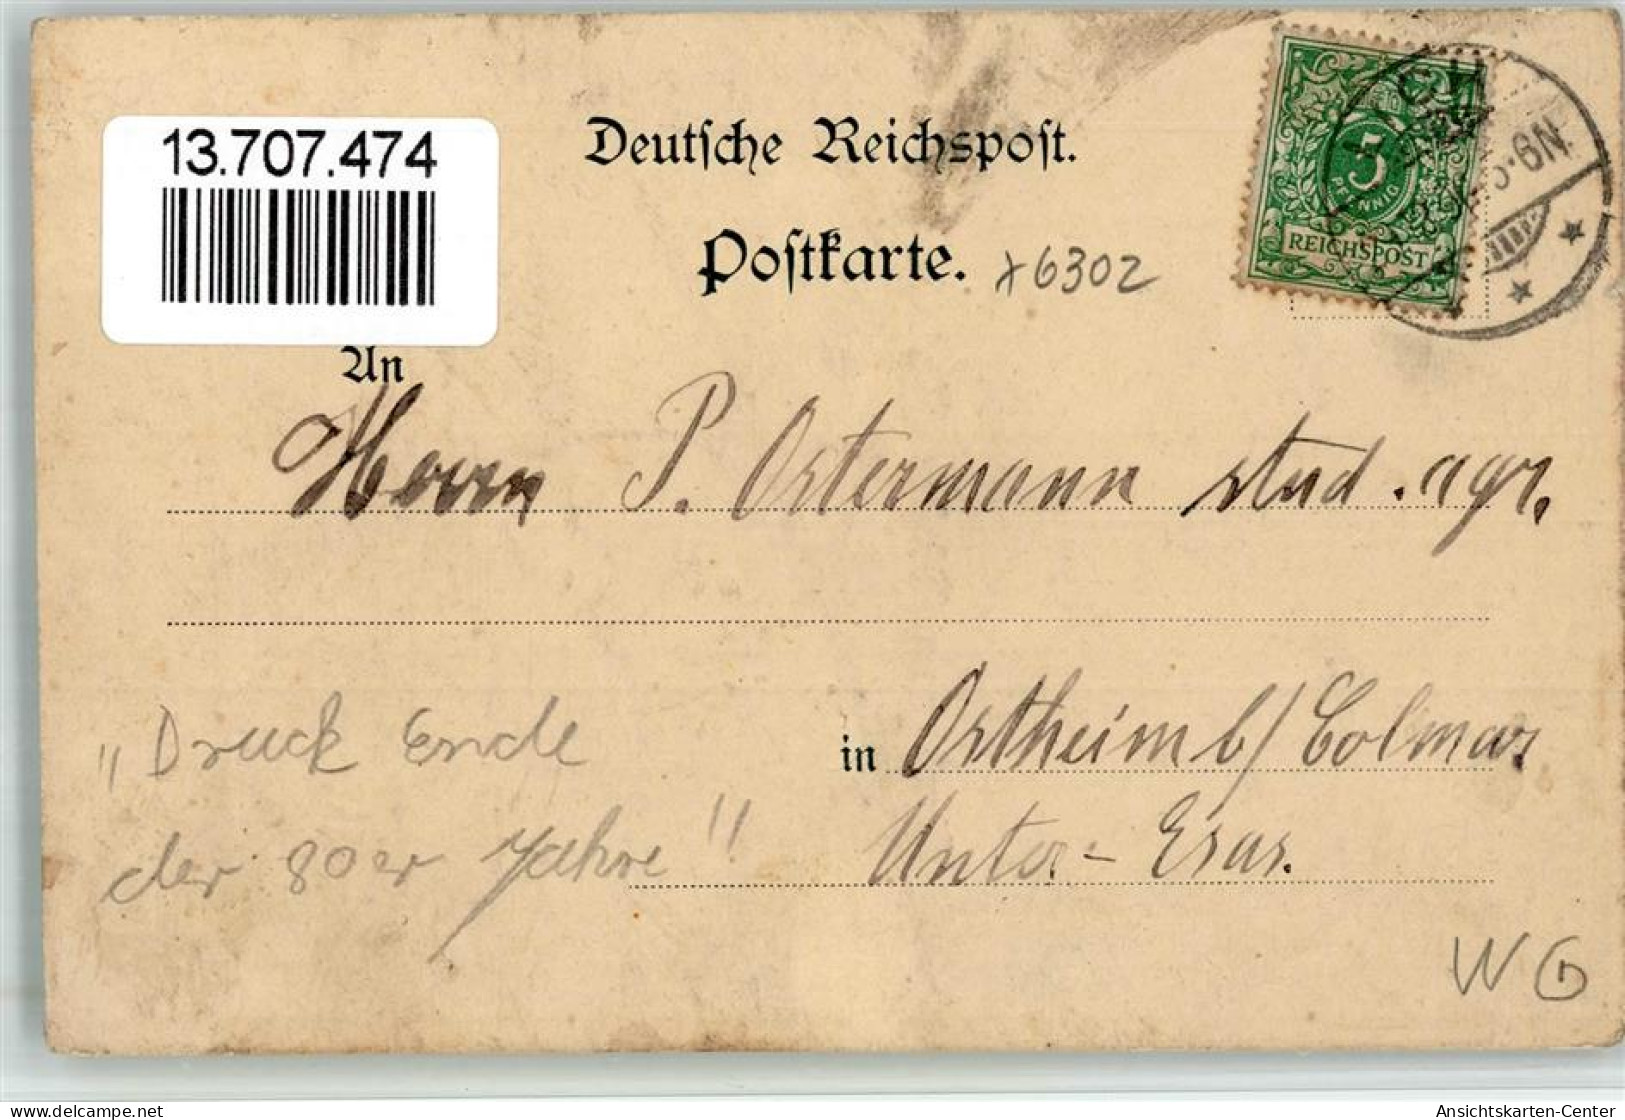 13.707.474
Deutsche Reichspost.
Postkarte. x6302
5
PFENNIG
REICHSPOST
5-6N.
An
Herrn P. Ostermann stud. agr.
in Ostheim b/ Colmar
Unter-Elsas.
"Druck Ende
der 80er Jahre"
W G
delcampe.net
Ansichtskarten-Center